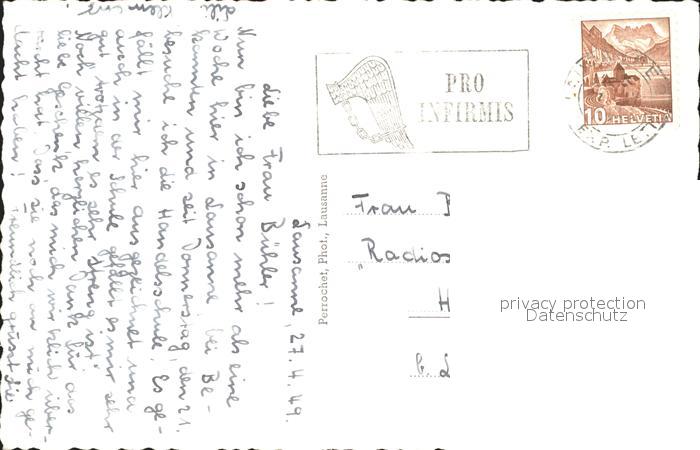 Lausanne, 27.4.49.
Liebe Frau Bühler!
Nun bin ich schon mehr als eine
Woche hier in Lausanne bei Be-
kannten und seit Donnerstag, den 21.
besuche ich die Handelsschule. Es ge-
fällt mir hier ausgezeichnet und
auch in der Schule gefällt es mir sehr
gut trotzdem es sehr streng ist.
Noch vielen herzlichen Dank für das
liebe Geschenk, das mich wirklich über-
rascht hat. Dass sie noch an mich ge-
dacht haben! Freundlich grüsst Sie
Perrochet, Phot., Lausanne
PRO
INFIRMIS
10 HELVETIA
EXP. LET
Frau
"Radios
H
b. L
privacy protection
Datenschutz